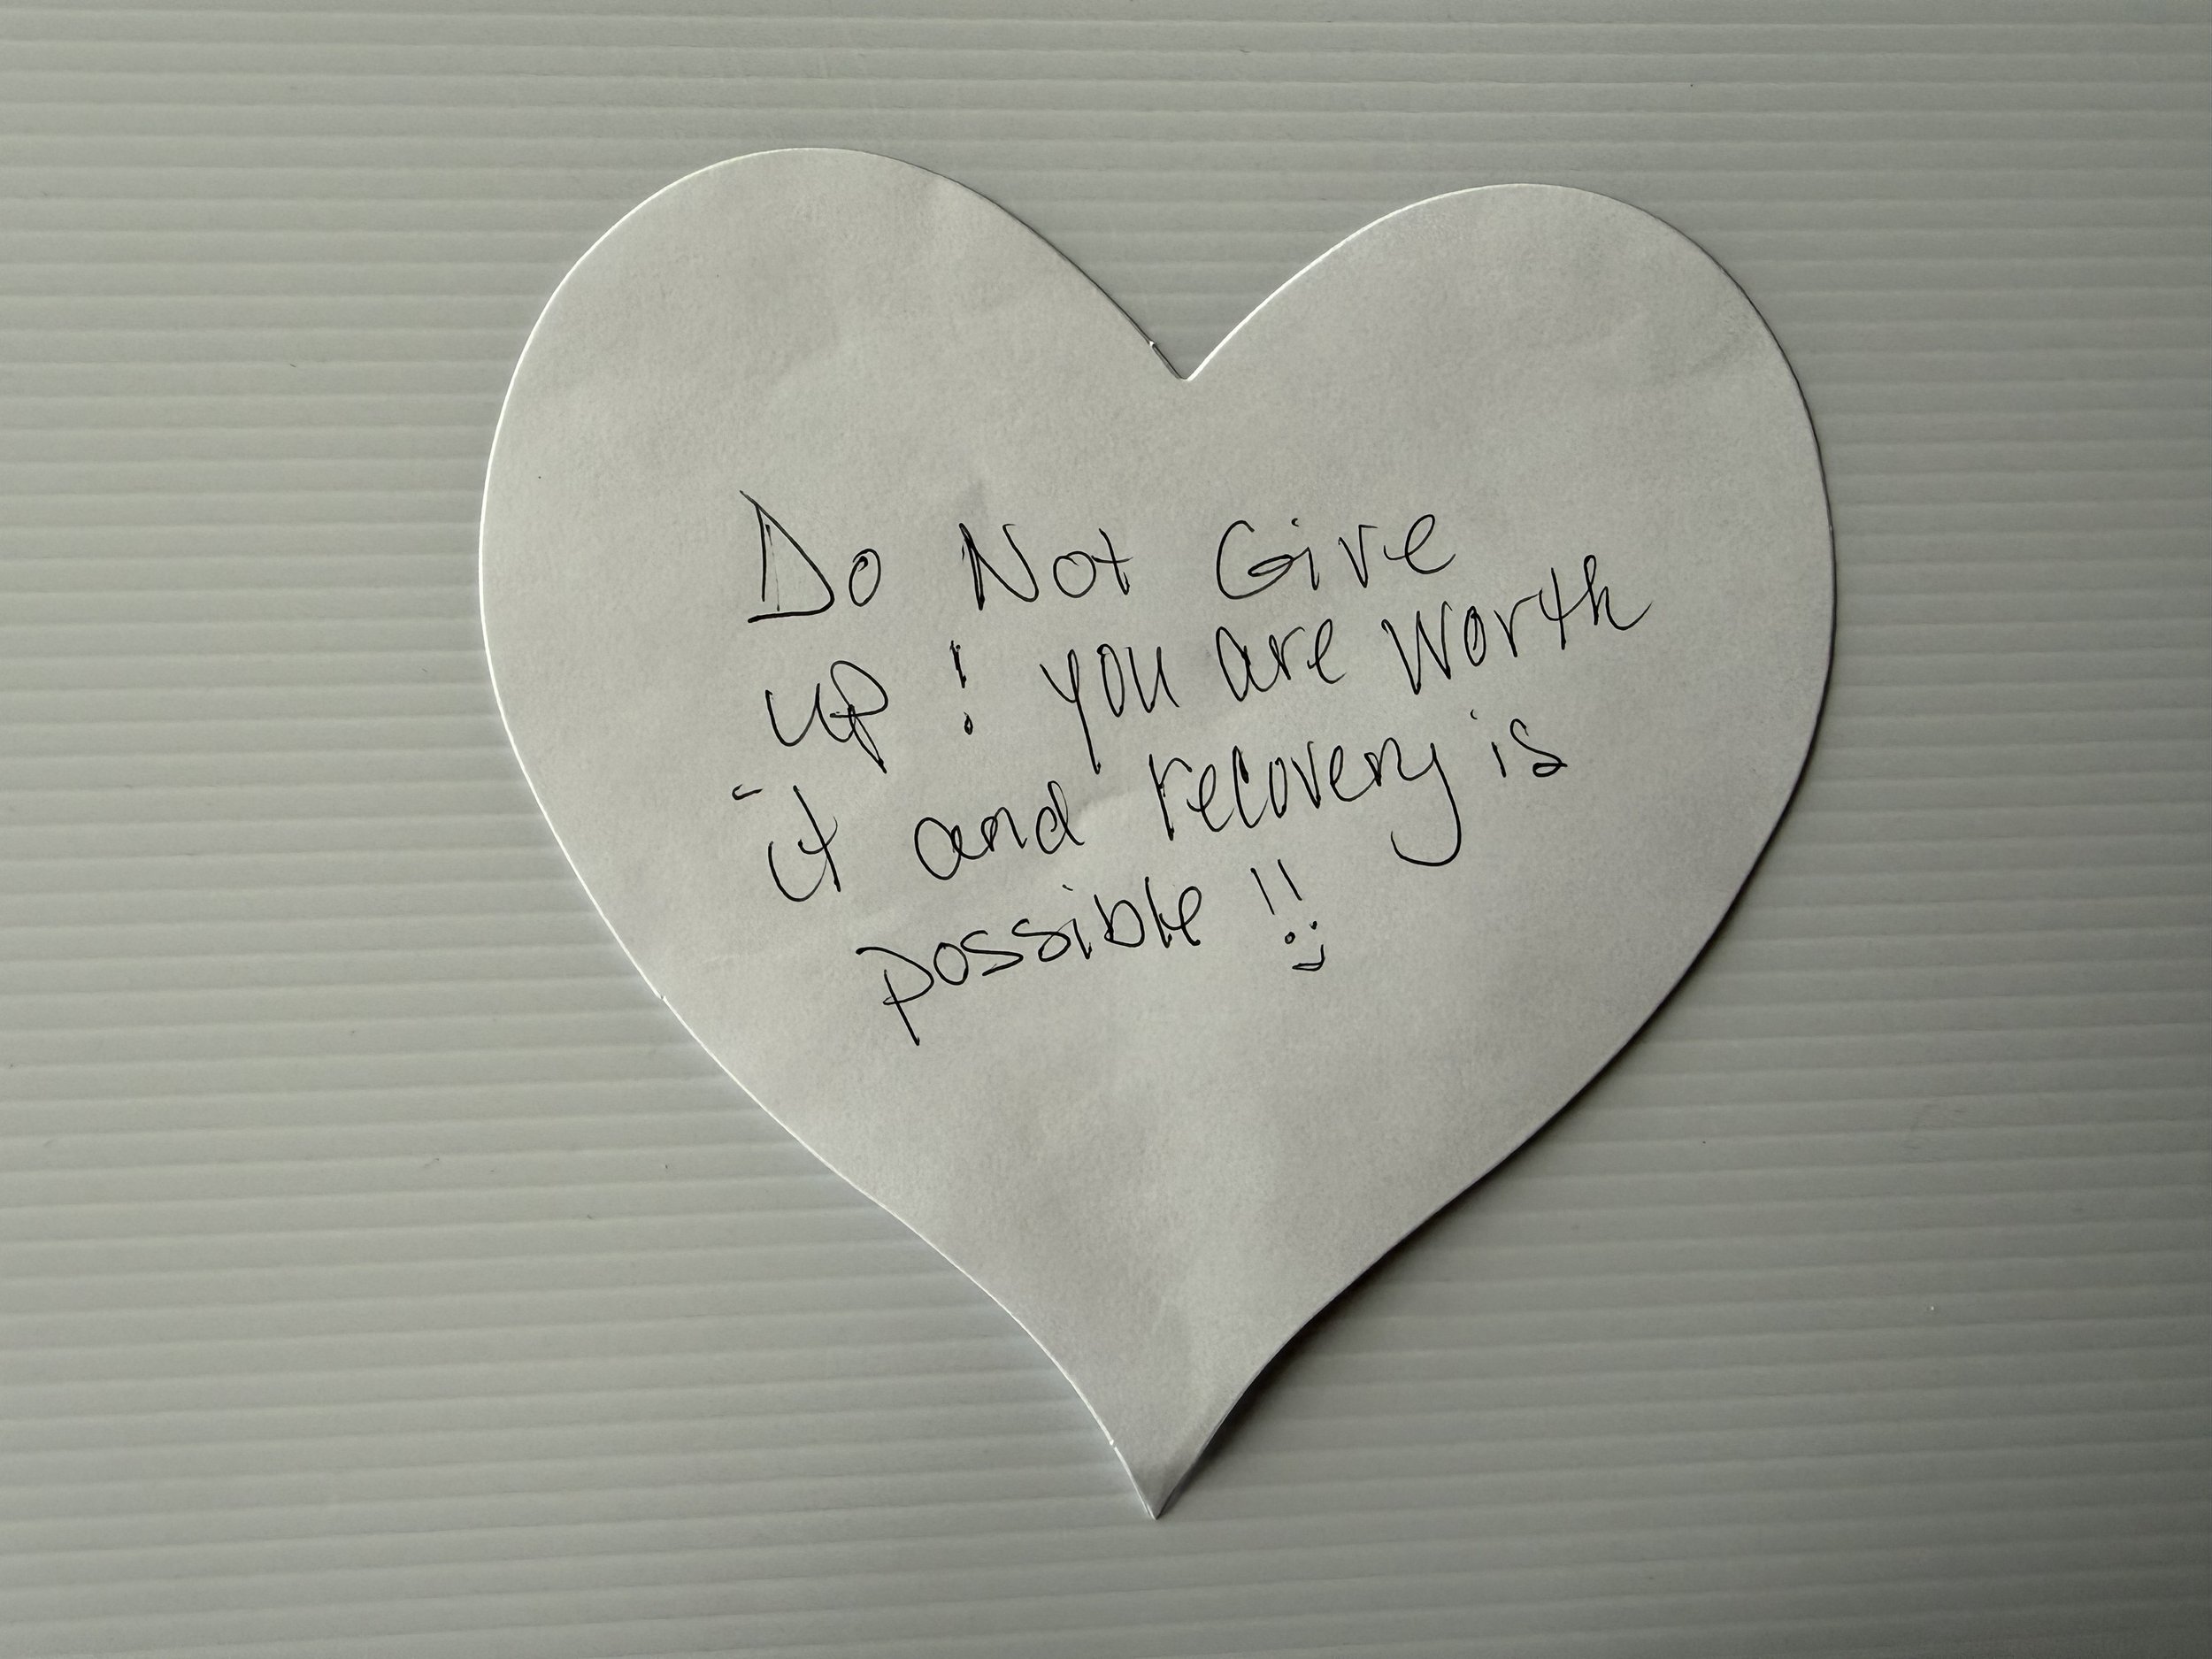 Do Not Give
up! you are worth
it and recovery is
possible!!